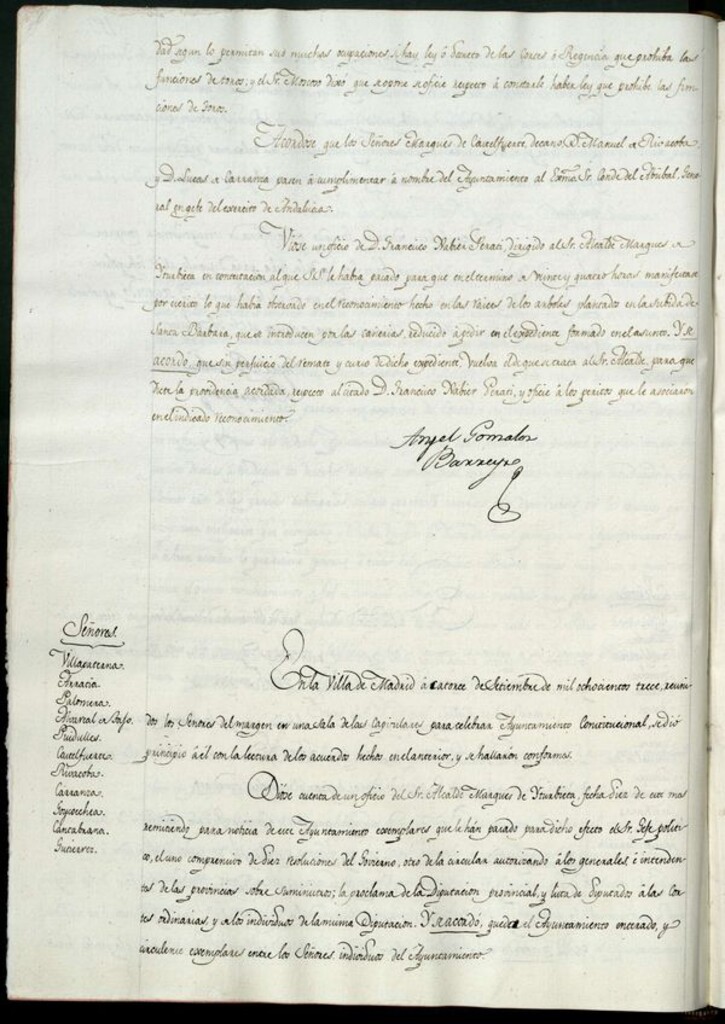 dad segun lo permitan sus muchas ocupaciones si hay ley ó Decreto de las Cortes ó Regencia que prohiba las
funciones de toros; y el Sr. Moscoso dixo que se opone se oficie respecto á constarle haber ley que prohibe las fun
ciones de toros.
Acordóse que los Señores Marques de Castelfuerte, decano, D. Manuel de Rivacoba,
y D. Lucas de Carranza pasen á cumplimentar á nombre del Ayuntamiento al Exmo. Sr. Conde del Abisbal, Gene
ral en gefe del exercito de Andalucia.
Vióse un oficio de D. Francisco Xabier Ferati, dirigido al Sr. Alcalde Marques de
Yturbieta en contextacion al que S.S. le habia pasado para que en el termino de veinte y quatro horas manifestase
por escrito lo que habia observado en el reconocimiento hecho en las raices de los arboles plantados en la subida de
Santa Barbara, que se introducen por las cañerias, reducido á pedir en el expediente formado en el asunto. Y se
acordó, que sin perjuicio del remate y curso de dicho expediente, vuelva el de que se trata al Sr. Alcalde, para que
dicte la providencia acordada, respecto al citado D. Francisco Xabier Ferati, y oficie á los peritos que le asociaron
en el indicado reconocimiento.
Angel Gonzalez
Barreyro
Señores.
Villapaterna.
Arratia.
Palomera.
Puidulles.
Castelfuerte.
Rivacoba.
Carranza.
Goycoechea.
Cantabrana.
Gutierrez.
En la Villa de Madrid á catorce de Setiembre de mil ochocientos trece, reuni
dos los Señores del margen en una sala de las Capitulares para celebrar Ayuntamiento Constitucional, se dió
principio á él con la lectura de los acuerdos hechos en el anterior, y se hallaron conformes.
Dióse cuenta de un oficio del Sr. Alcalde Marques de Yturbieta, fecha diez de este mes
remitiendo para noticia de este Ayuntamiento exemplares que le han pasado para dicho efecto el Sr. Gefe politi
co, el uno comprensivo de diez resoluciones del Govierno, otro de la circular autorizando á los generales, é intenden
tes de las provincias sobre suministros; la proclama de la Diputacion provincial, y lista de Diputados á las Cor
tes ordinarias, y de los individuos de la misma Diputacion. Y se acordó, quede el Ayuntamiento enterado, y
circulense exemplares entre los Señores individuos del Ayuntamiento.